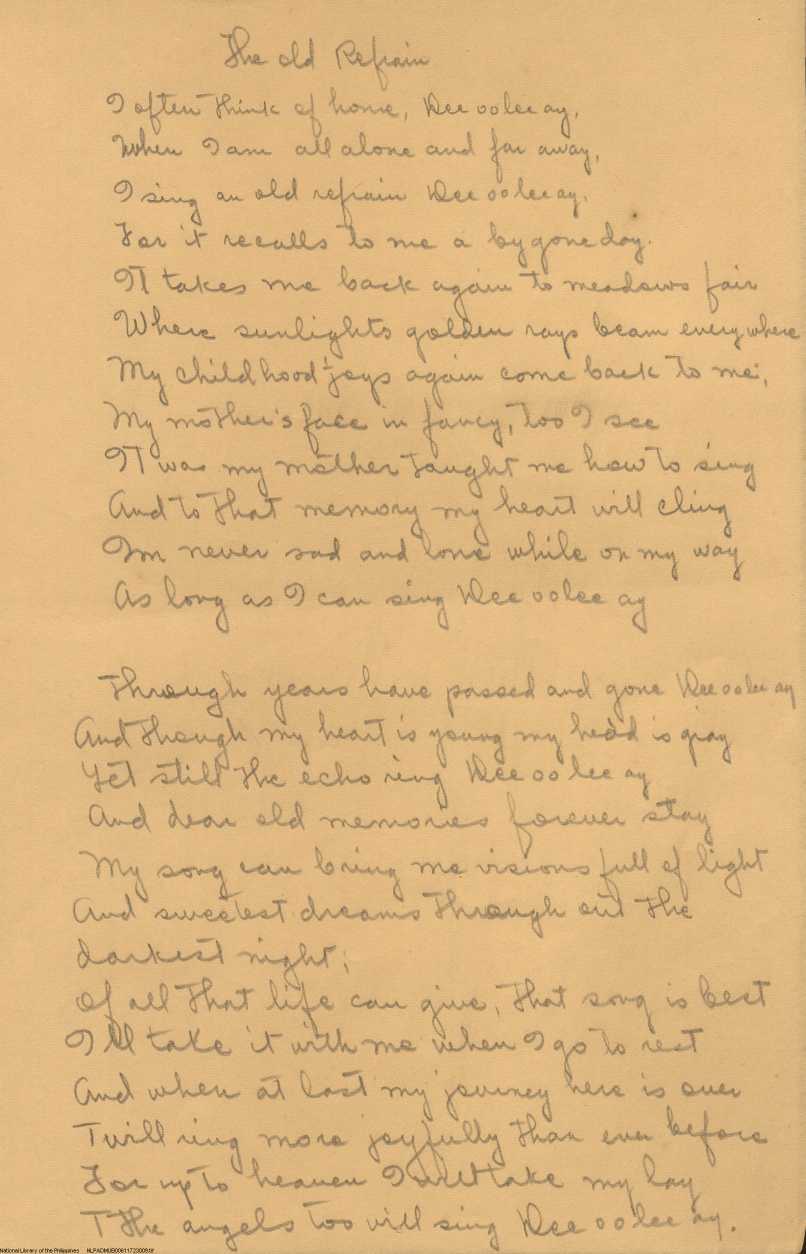 The old Refrain
I often think of home, Dee oolee ay,
When I am all alone and far away,
I sing an old refrain Dee oolee ay,
For it recalls to me a bygone day.
It takes me back again to meadows fair
Where sunlights golden rays beam everywhere
My childhood joys again come back to me,
My mother's face in fancy, too I see
It was my mother taught me how to sing
And to that memory my heart will cling
I'm never sad and lone while on my way
As long as I can sing Dee oolee ay
Through years have passed and gone Dee oolee ay
And though my heart is young my head is gray
Yet still the echo ring Dee oo lee ay
And dear old memories forever stay
My song can bring me visions full of light
And sweetest dreams through out the
darkest night;
Of all that life can give, that song is best
I'll take it with me when I go to rest
And when at last my journey here is over
Twill ring more joyfully than ever before
For up to heaven I will take my lay
The angels too will sing Dee oolee ay.
National Library of the Philippines